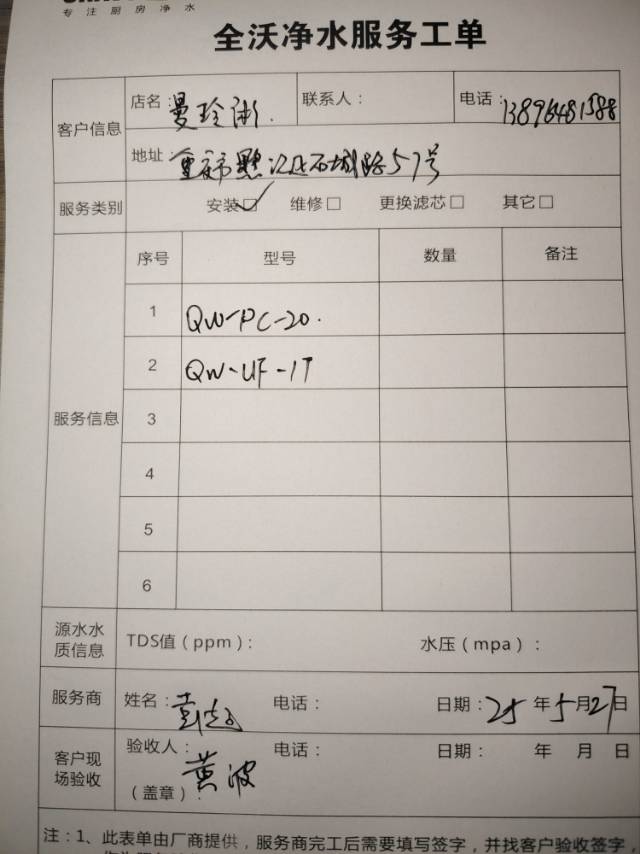 专注厨房净水
全沃净水服务工单
客户信息
店名：曼玲粥.
联系人：
电话：13896481588
地址：重庆市黔江区石城路57号
服务类别
安装☑ 维修□ 更换滤芯□ 其它□
服务信息
序号 型号 数量 备注
1 QW-PC-20.
2 QW-UF-1T
3
4
5
6
源水水质信息
TDS值（ppm）： 水压（mpa）：
服务商
姓名： 电话： 日期：25年5月27日
客户现场验收
验收人：黄波 电话： 日期： 年 月 日
（盖章）
注：1、此表单由厂商提供，服务商完工后需要填写签字，并找客户验收签字，